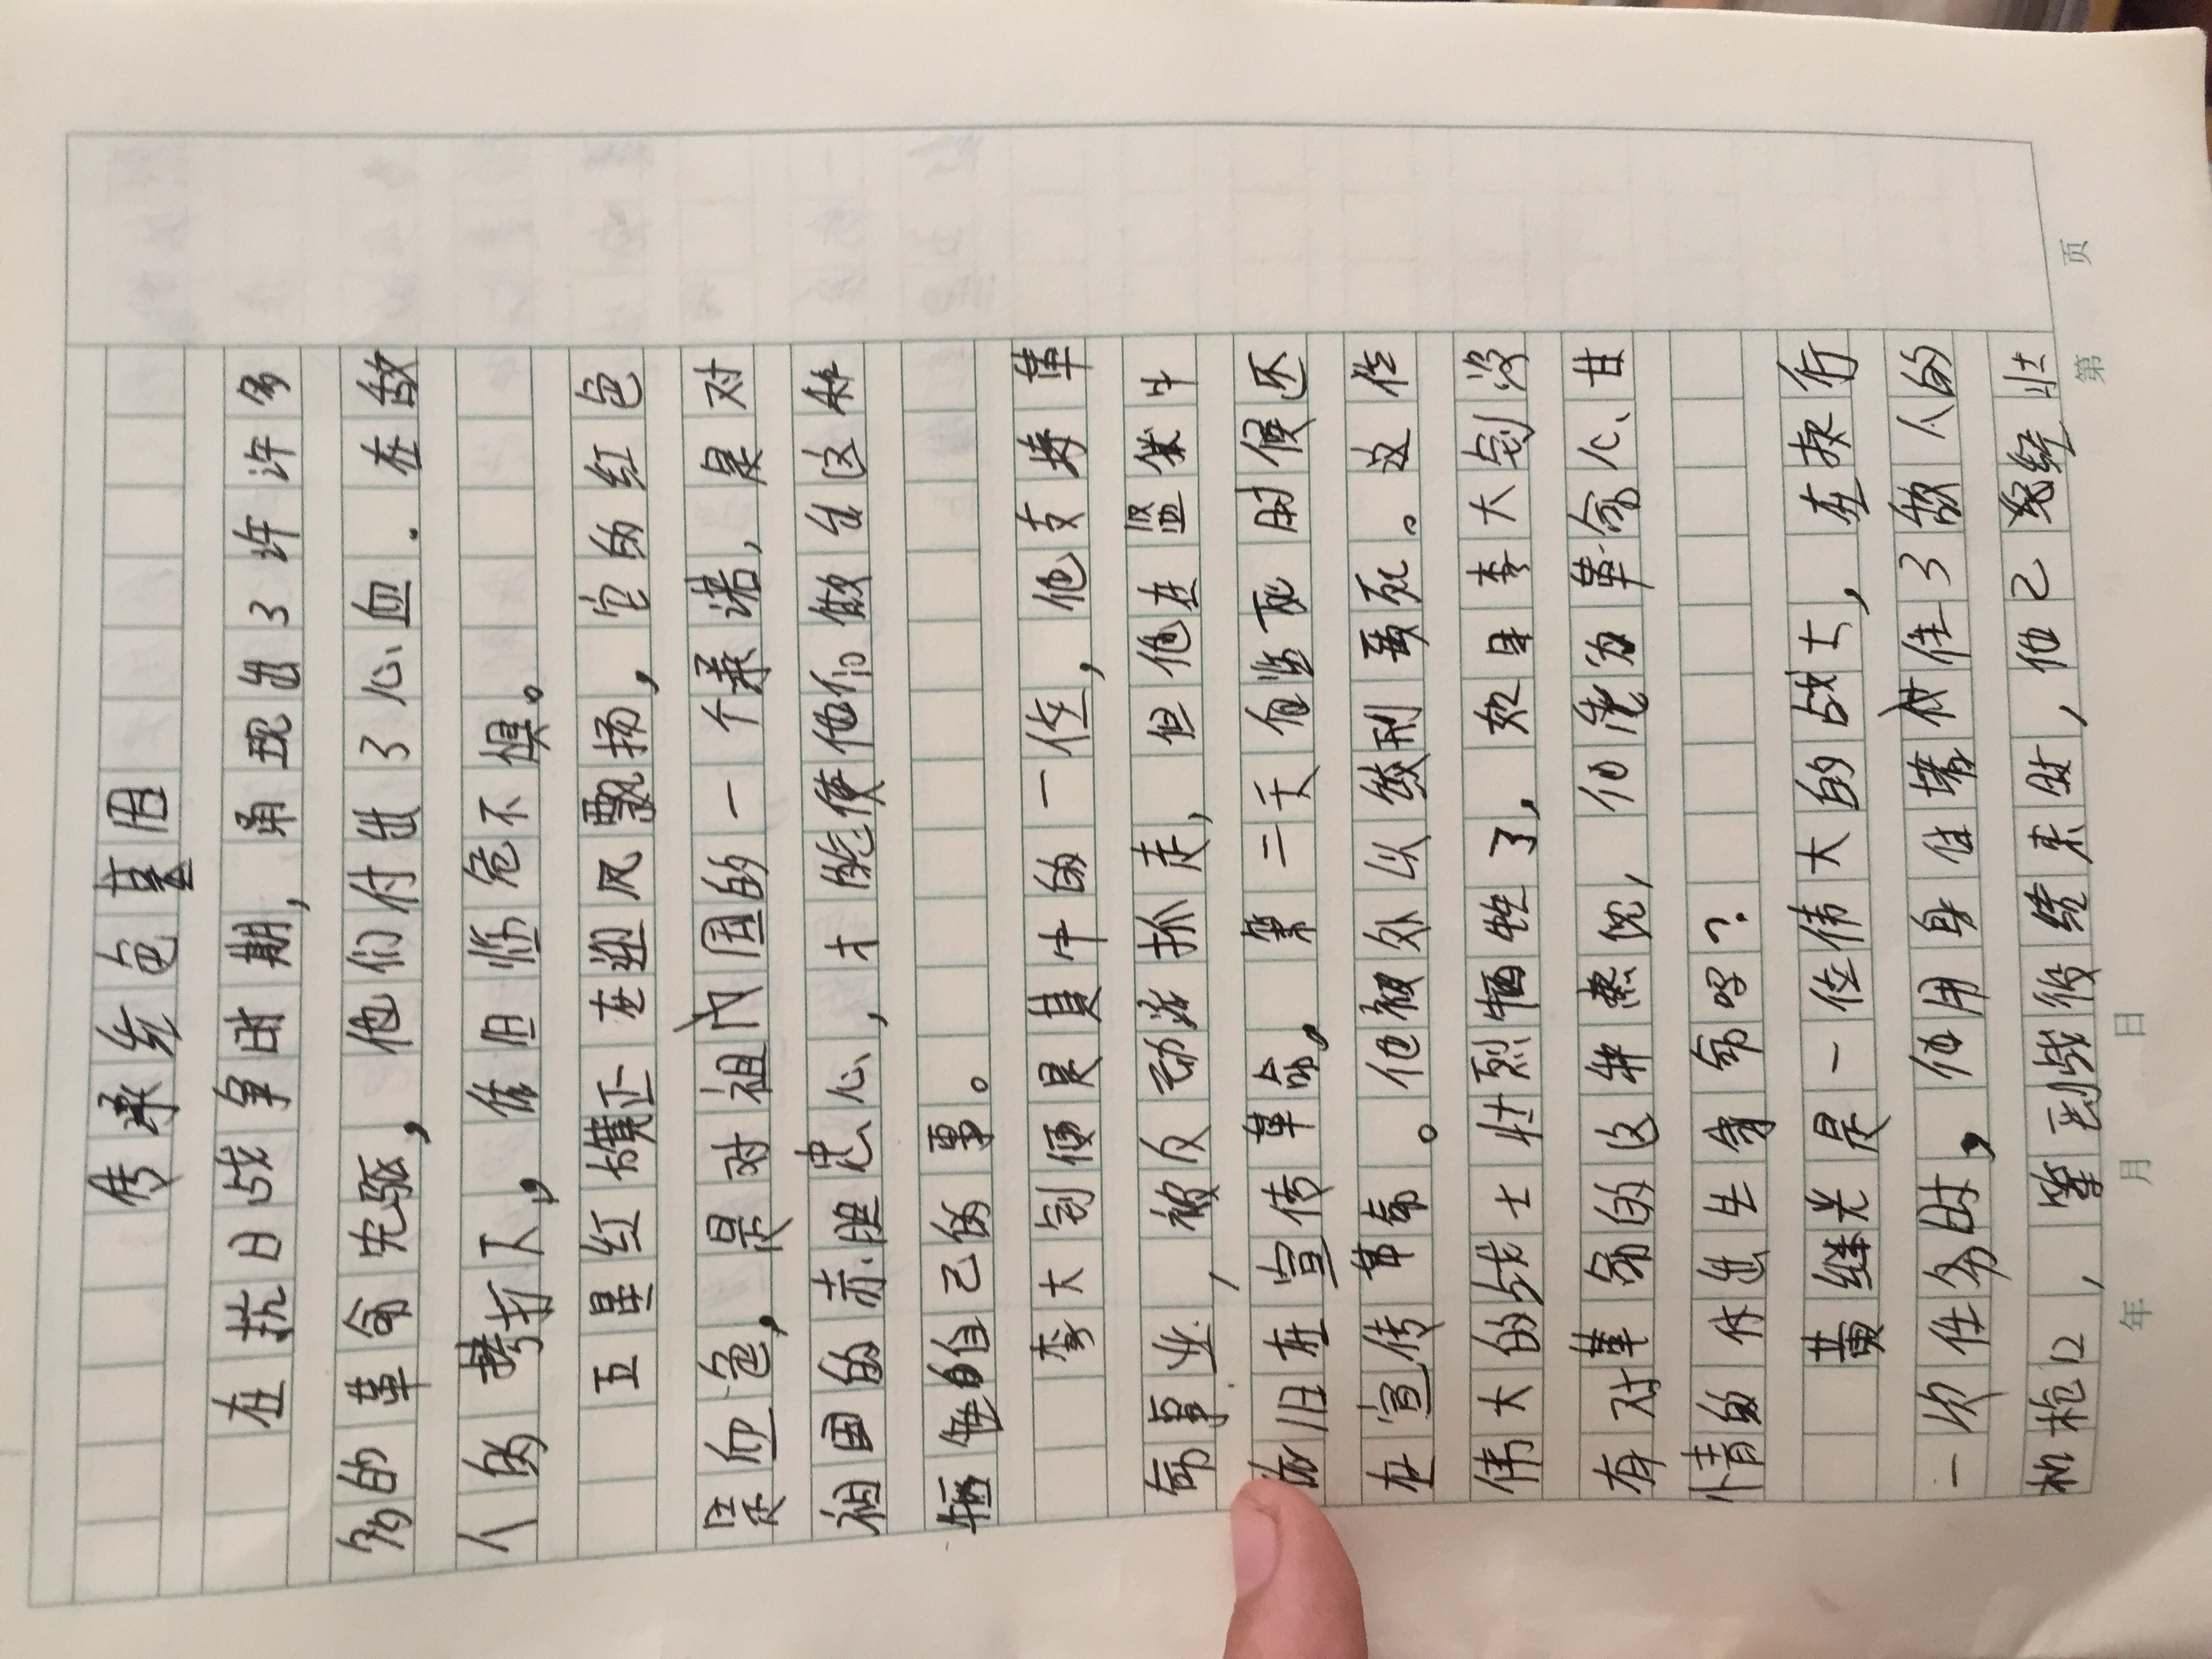 传承红色基因
在抗日战争时期，涌现出了许许多
多的革命先驱，他们付出了心血．在敌
人的拷打下，依旧临危不惧。
五星红旗正在迎风飘扬，它的红色
是血色，是对祖国的一个承诺，是对
祖国的赤胆忠心，才能使他们做出这种
牺牲自己的事。
李大钊便是其中的一位，他支持革
命事业，被反动派抓走，但他在监狱中
依旧在宣传革命。第二天自临死时候还
在宣传革命。他被处以绞刑致死。这位
伟大的战士壮烈牺牲了，如果李大钊没
有对革命的这种热忱，他能为革命心甘
情的付出生命吗？
黄继光是一位伟大的战士，在执行
一次任务时，他用身体堵住了敌人的
机枪口，等到战役结束时，他已经壮
年 月 日 第 页